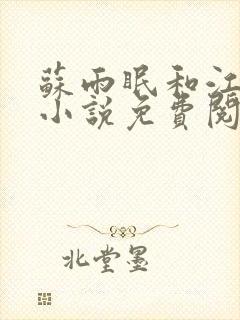 蘇雨眠和江
小說免費閱
北堂墨